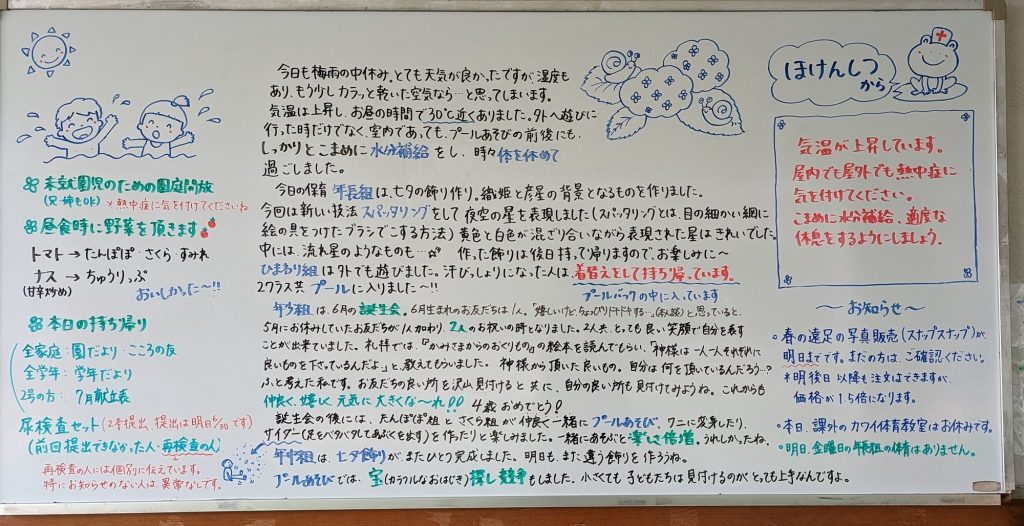 未就園児のための園庭開放
(兄・姉もOK) ×熱中症に気を付けてくださいね
昼食時に野菜を頂きます
トマト→たんぽぽ・さくら・すみれ
ナス→ちゅうりっぷ
(甘辛炒め)
おいしかった〜!!
本日の持ち帰り
全家庭:園だより・こころの友
全学年:学年だより
2号の方:7月献立表
尿検査セット(2本提出、提出は明日6/30です)
(前回提出できなかった人・再検査の人)
再検査の人には個別に伝えています。
特にお知らせのない人は、異常なしです。
今日も梅雨の中休み、とても天気が良かったですが湿度も
あり、もう少しカラッと乾いた空気なら…と思ってしまいます。
気温は上昇し、お昼の時間で30℃近くありました。外へ遊びに
行った時だけでなく、室内であっても、プールあそびの前後にも、
しっかりとこまめに水分補給をし、時々体を休めて
過ごしました。
今日の保育 年長組は、七夕の飾り作り。織姫と彦星の背景となるものを作りました。
今回は新しい技法スパッタリングをして夜空の星を表現しました(スパッタリングとは、目の細かい網に
絵の具をつけたブラシでこする方法)黄色と白色が混ざり合いながら表現された星はきれいでした。
中には、流れ星のようなものも…☆ 作った飾りは後日持って帰りますので、お楽しみに〜
ひまわり組は外でも遊びました。汗びっしょりになった人は、着替えをして持ち帰っています。
2クラス共プールに入りました〜!! プールバックの中に入っています
年少組は、6月の誕生会。6月生まれのお友だちは1人。「嬉しいけど、ちょっぴりドキドキする…。(本人談)と思っていると、
5月にお休みしていたお友だちが1人加わり、2人のお祝いの時となりました。2人共、とっても良い笑顔で自分を表す
ことが出来ていました。礼拝では、『かみさまからのおくりもの』の絵本を読んでもらい、「神様は一人一人それぞれに
良いものを下さっているんだよ」と、教えてもらいました。神様から頂いた良いもの。自分は何を頂いているんだろう…?
ふと考えた私です。お友だちの良い所を沢山見付けると共に、自分の良い所も見付けてみようね。これからも
仲良く、嬉しく、元気に大きくな〜れ!! 4歳おめでとう!
誕生会の後には、たんぽぽ組とさくら組が仲良く一緒にプールあそび。ワニに変身したり、
サイダー(足をバタバタしてあぶくを出す)を作ったりと楽しみました。一緒にあそぶと楽しさ倍増。うれしかったね。
年中組は、七夕飾りがまたひとつ完成しました。明日も、また違う飾りを作ろうね。
プールあそびでは、宝(カラフルなおはじき)探し競争もしました。小さくても子どもたちは見付けるのがとっても上手なんですよ。
ほけんしつ
から
気温が上昇しています。
屋内でも屋外でも熱中症に
気を付けてください。
こまめに水分補給、適度な
休息をするようにしましょう。
〜お知らせ〜
・春の遠足の写真販売(スナップスナップ)が、
明日までです。まだの方は、ご確認ください。
*明後日以降も注文はできますが、
価格が1.5倍になります。
・本日、課外のカワイ体育教室はお休みです。
・明日、金曜日の年長組の体育はありません。